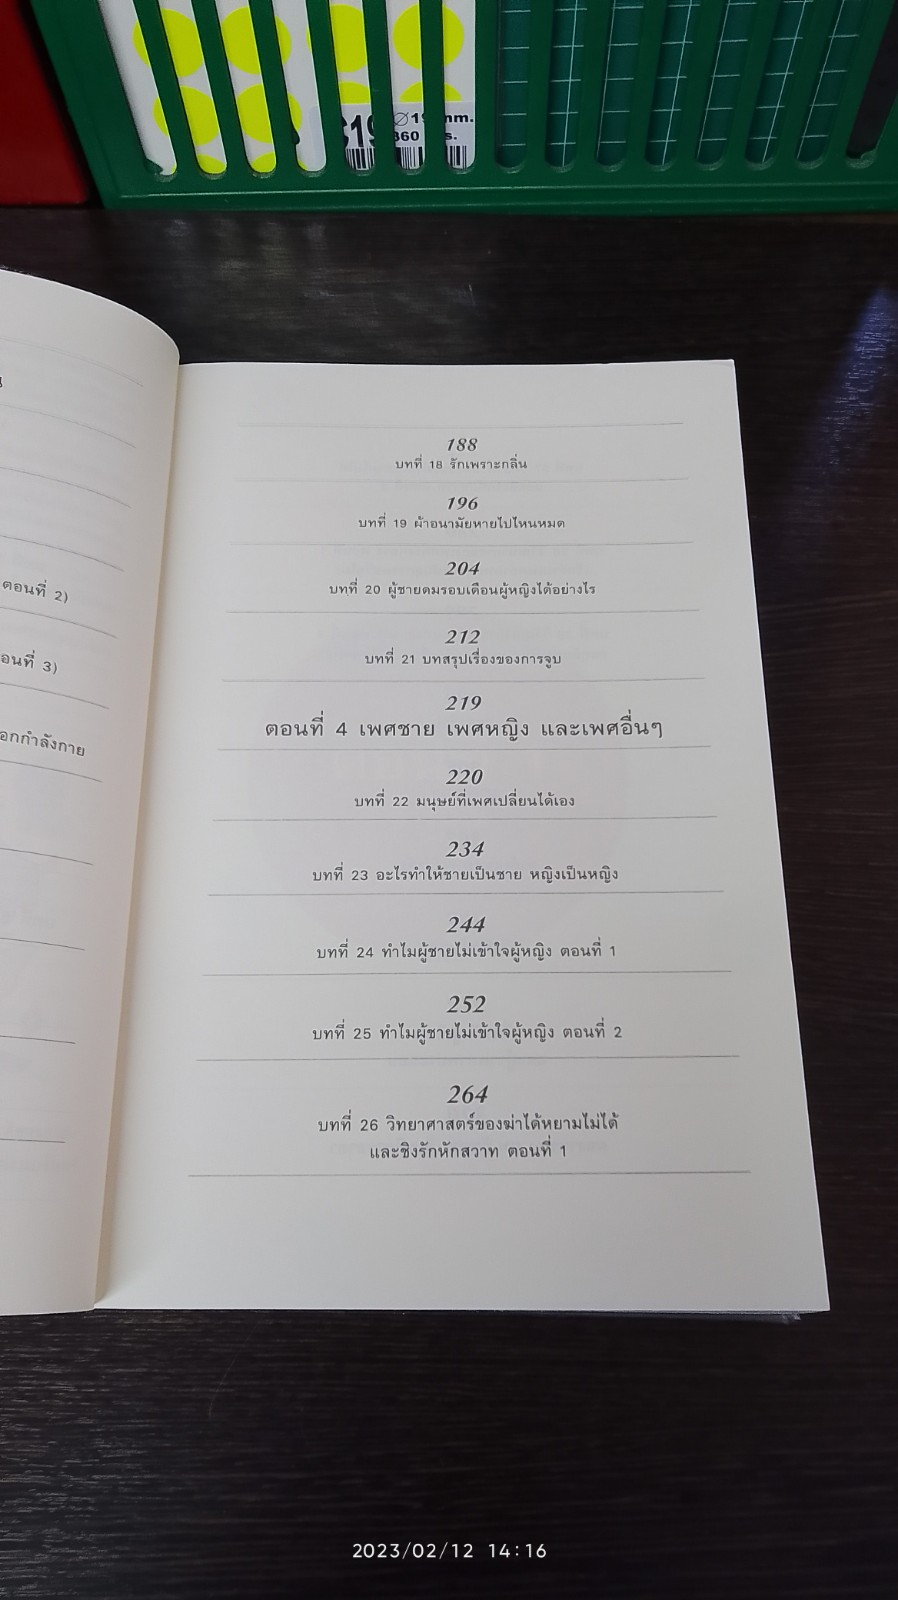 19
mm.
360
ตอนที่ 2)
อนที่ 3)
อกกำลังกาย
188
บทที่ 18 รักเพราะกลิ่น
196
บทที่ 19 ผ้าอนามัยหายไปไหนหมด
204
บทที่ 20 ผู้ชายดมรอบเดือนผู้หญิงได้อย่างไร
212
บทที่ 21 บทสรุปเรื่องของการจูบ
219
ตอนที่ 4 เพศชาย เพศหญิง และเพศอื่นๆ
220
บทที่ 22 มนุษย์ที่เพศเปลี่ยนได้เอง
234
บทที่ 23 อะไรทำให้ชายเป็นชาย หญิงเป็นหญิง
244
บทที่ 24 ทำไมผู้ชายไม่เข้าใจผู้หญิง ตอนที่ 1
252
บทที่ 25 ทำไมผู้ชายไม่เข้าใจผู้หญิง ตอนที่ 2
264
บทที่ 26 วิทยาศาสตร์ของฆ่าได้หยามไม่ได้
และชิงรักหักสวาท ตอนที่ 1
2023/02/12 14:16